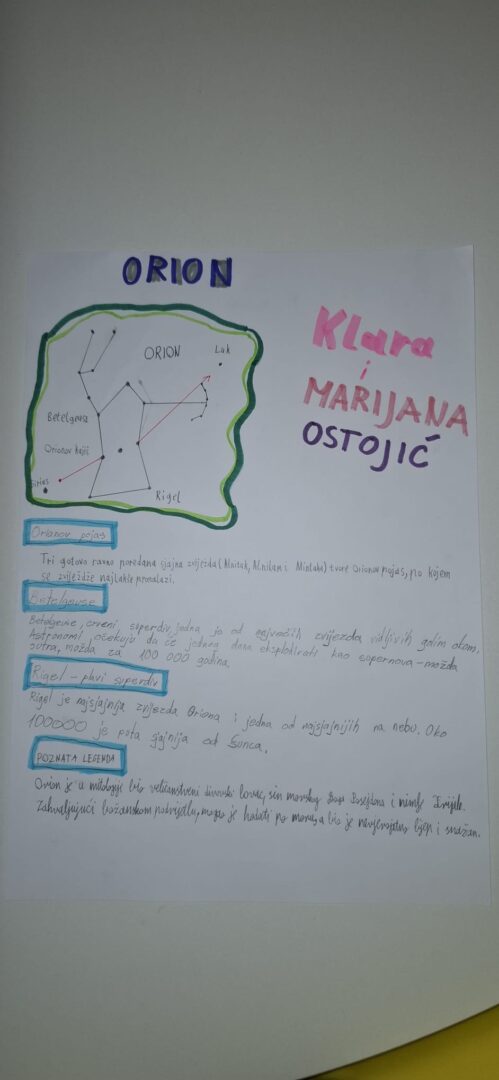 ORION
Klara
i
MARIJANA
OSTOJIĆ
ORION
Luk
Betelgeuse
Orionov
Sirius
Rigel
Orionov pojas
Tri gotovo ravno poredana sjajna zvijezda (Alnitak, Alnilam i Mintaka) tvore Orionov pojas, po kojem
se zviježđe najlakše pronalazi.
Betelgeuse
Betelgeuse, crveni, superdiv, jedna je od najvećih zvijezda vidljivih golim okom,
Astronomi očekuju da će jednog dana eksplodirati kao supernova - možda
sutra, možda za 100 000 godina.
Rigel - plavi superdiv
Rigel je najsjajnija zvijezda Oriona i jedna od najsjajnijih na nebu. Oko
100000 je puta sjajnija od Sunca.
POZNATA LEGENDA
Orion je u mitologiji bio veličanstveni divovski lovac, sin morskog Boga Posejdona i nimfe
Zahvaljujući božanskom podrijetlu, mogao je hodati po moru, a bio je nevjerojatno lijep i snažan.